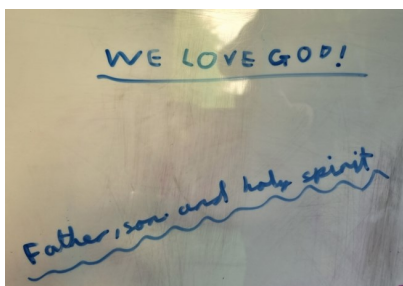 WE LOVE GOD!
Father, son and holy spirit